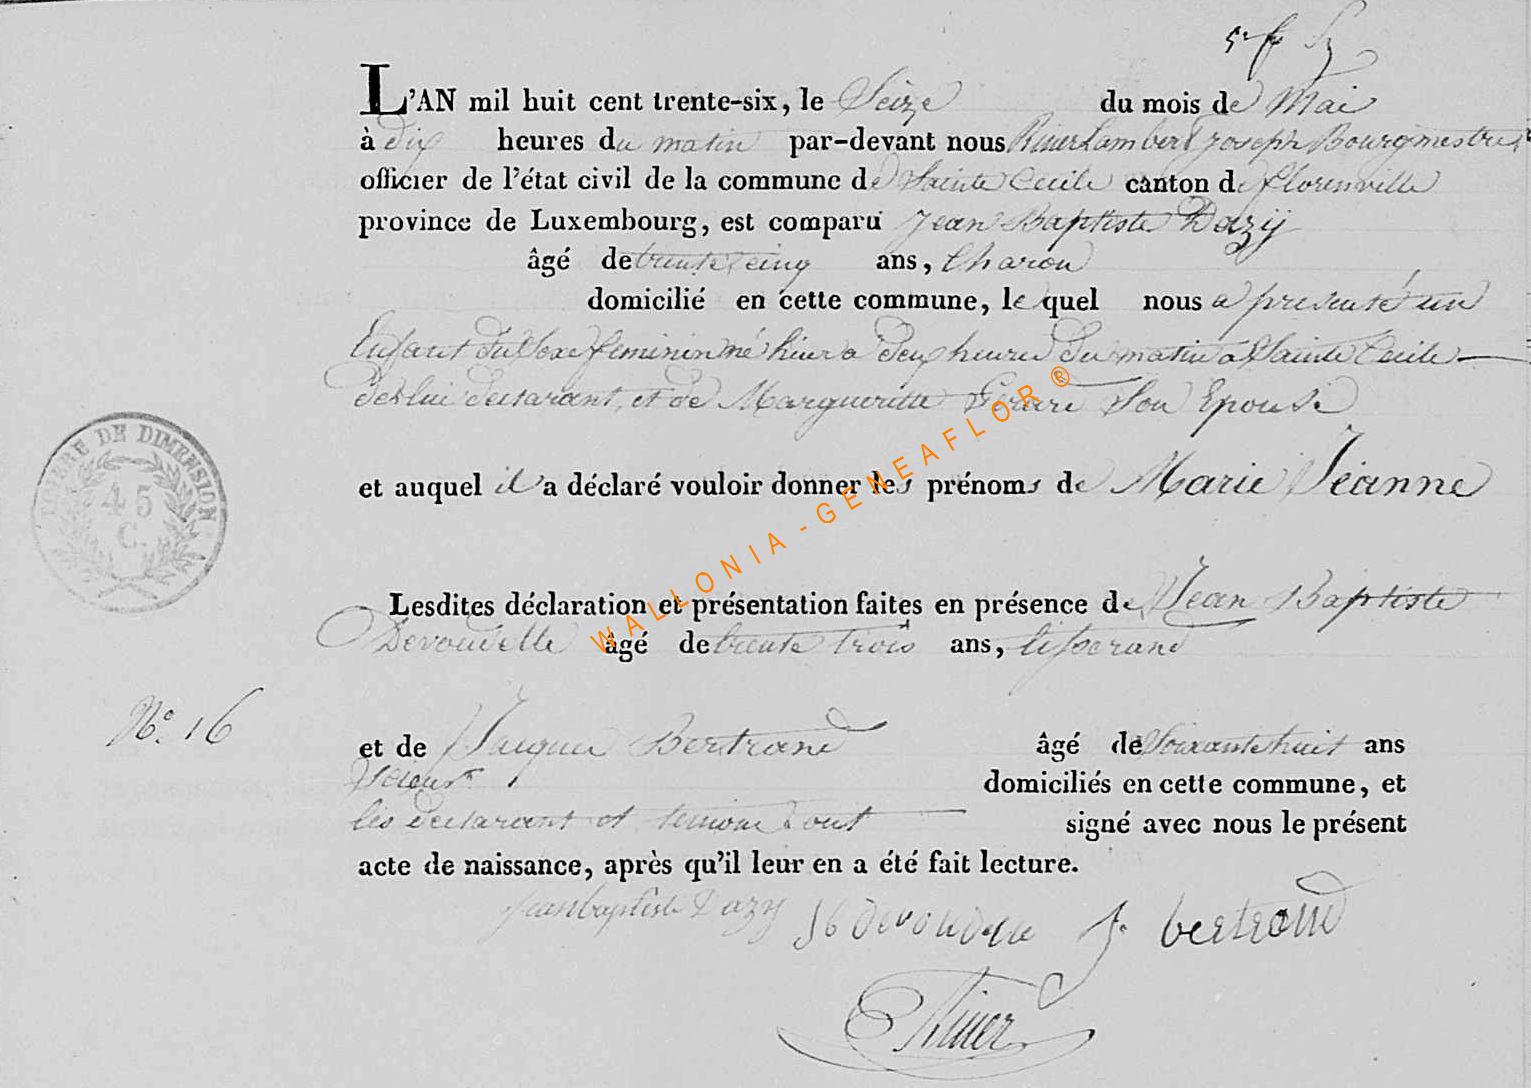 L'AN mil huit cent trente-six, le Seize du mois de Mai
à dix heures du matin par-devant nous River Lambert joseph Bourgmestre
officier de l'état civil de la commune de Sainte Cecile canton de florenville
province de Luxembourg, est comparu Jean Baptiste Dazij
âgé de trente cinq ans, Charon
domicilié en cette commune, le quel nous a presenté un
Enfant du sexe feminin né hier a deux heures du matin a Sainte Cecile
de lui declarant, et de Margueritte Son Epouse
et auquel il a déclaré vouloir donner les prénoms de Marie Jeanne
TIMBRE DE DIMENSION
45
C.
Lesdites déclaration et présentation faites en présence de Jean Baptiste
Devoudelle âgé de trente trois ans, tisserand
No. 16
et de Jacques Bertrand âgé de Soixante huit ans
Scieur domiciliés en cette commune, et
les declarant et temoins ont signé avec nous le présent
acte de naissance, après qu'il leur en a été fait lecture.
jean baptiste Dazy J b devoudele J. bertrand
River
WALLONIA - GENEAFLOR ®